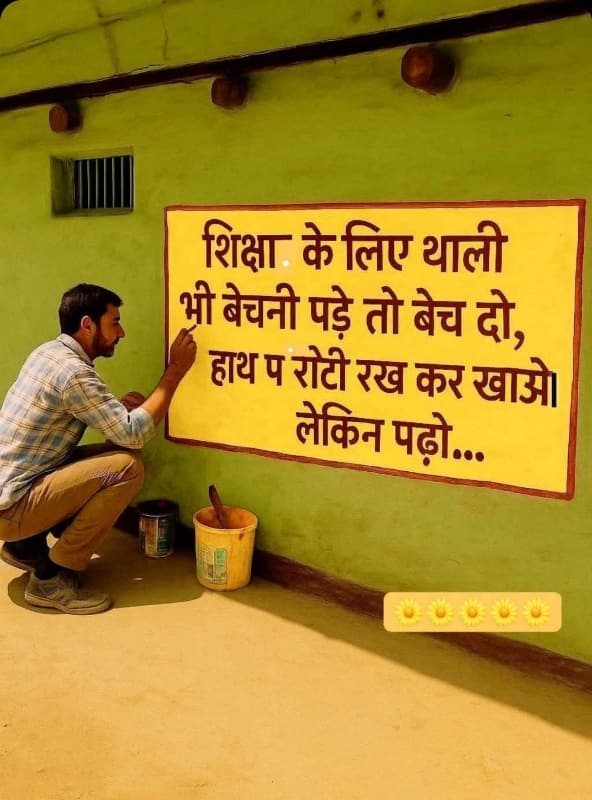 शिक्षा के लिए थाली
भी बेचनी पड़े तो बेच दो,
हाथ प रोटी रख कर खाओ
लेकिन पढ़ो...